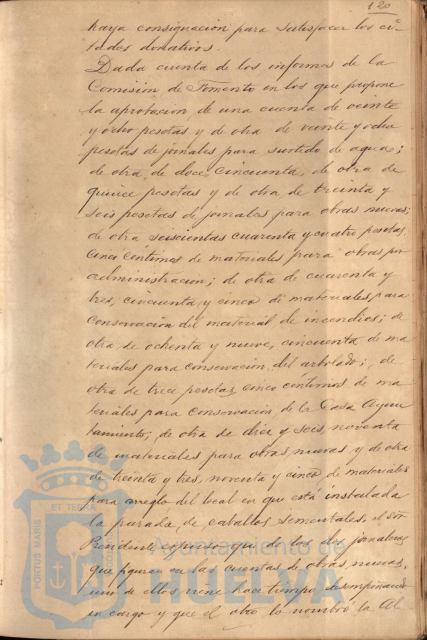 120
haya consignación para satisfacer los ci-
tados donativos.
Dada cuenta de los informes de la
Comisión de Fomento en los que propone
la aprobación de una cuenta de veinte
y ocho pesetas y de otra de veinte y ocho
pesetas de jornales para surtido de aguas;
de otra de doce, cincuenta, de otra de
quince pesetas y de otra de treinta y
seis pesetas de jornales para obras nuevas;
de otra seiscientas cuarenta y cuatro pesetas,
cinco céntimos de materiales para obras por
administracion; de otra de cuarenta y
tres, cincuenta y cinco de materiales para
conservación del material de incendios; de
otra de ochenta y nueve, cincuenta de ma
teriales para conservación del arbolado; de
otra de trece pesetas, cinco céntimos de ma
teriales para conservación de la Casa Ayun
tamiento; de otra de diez y seis, noventa
de materiales para obras nuevas y de otra
de treinta y tres, noventa y cinco, de materiales
para arreglo del local en que está instalada
la parada de caballos sementales, el Sor
Presidente expuso que de los dos jornaleros
que figuran en las cuentas de obras nuevas,
uno de ellos viene hace tiempo desempeñando
su cargo y que el otro lo nombró la Al
PORTUS MARIS ET TERRA
Ayuntamiento de
HUELVA